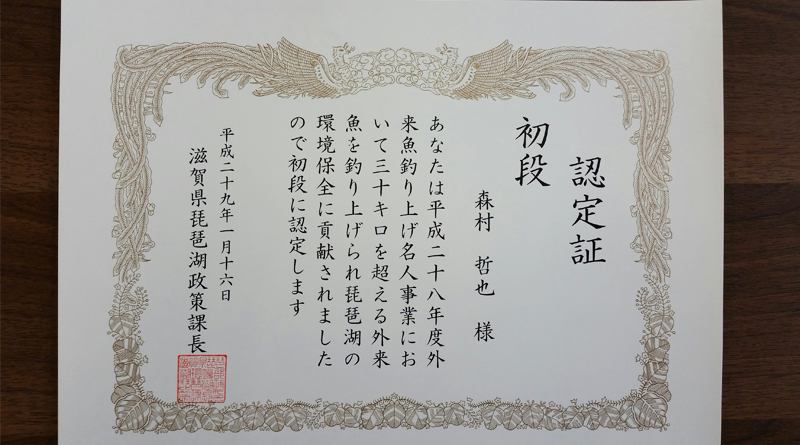 認定証
初段
森村 哲也 様
あなたは平成二十八年度外
来魚釣り上げ名人事業にお
いて三十キロを超える外来
魚を釣り上げられ琵琶湖の
環境保全に貢献されました
ので初段に認定します
平成二十九年一月十六日
滋賀県琵琶湖政策課長